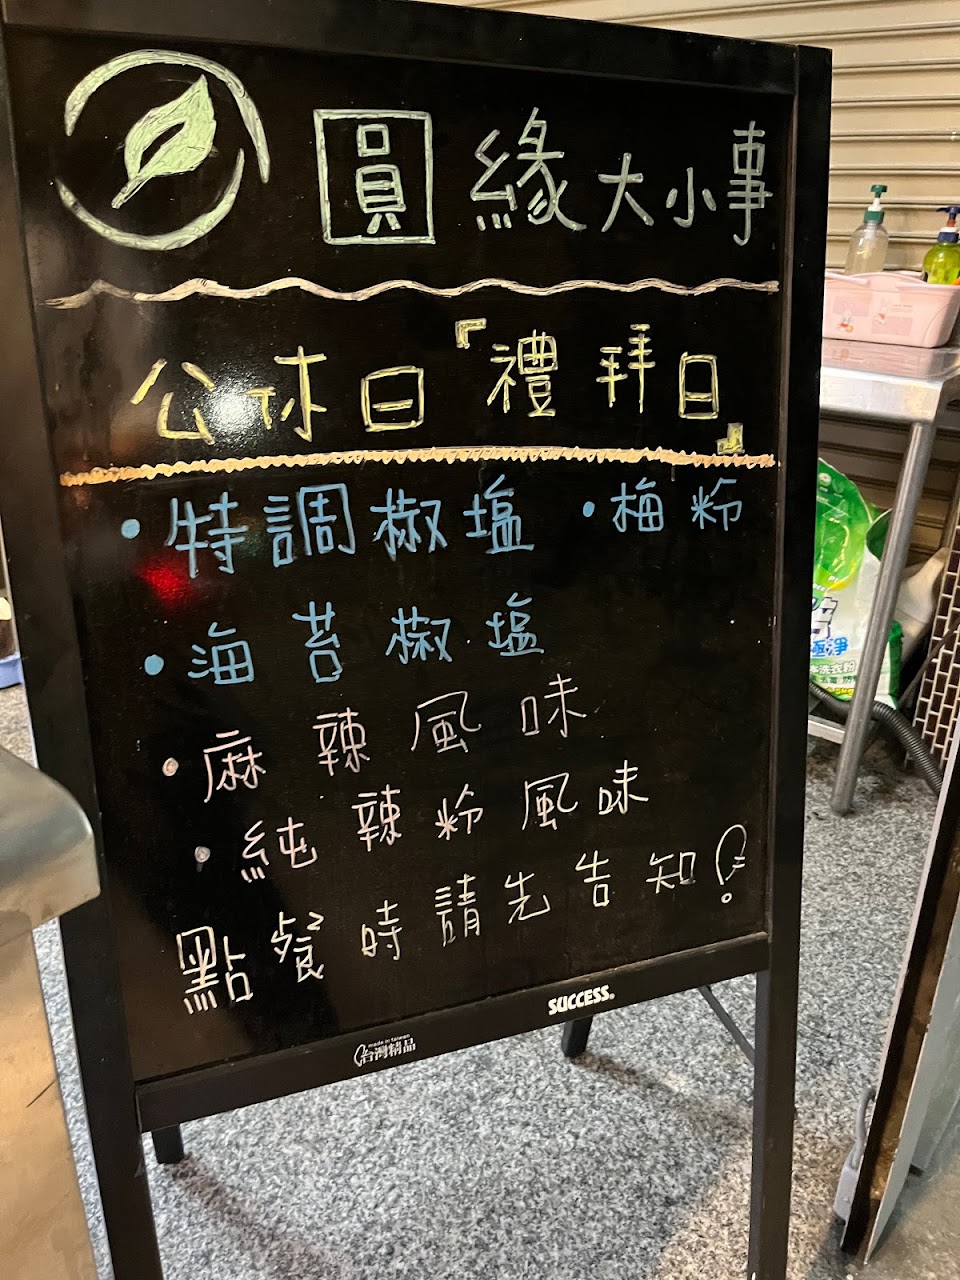 圓緣大小事
公休日『禮拜日』
·特調椒塩 ·梅粉
·海苔椒塩
·麻辣風味
·純辣粉風味
點餐時請先告知!
SUCCESS®
made in taiwan
台灣精品
極淨
洗衣粉